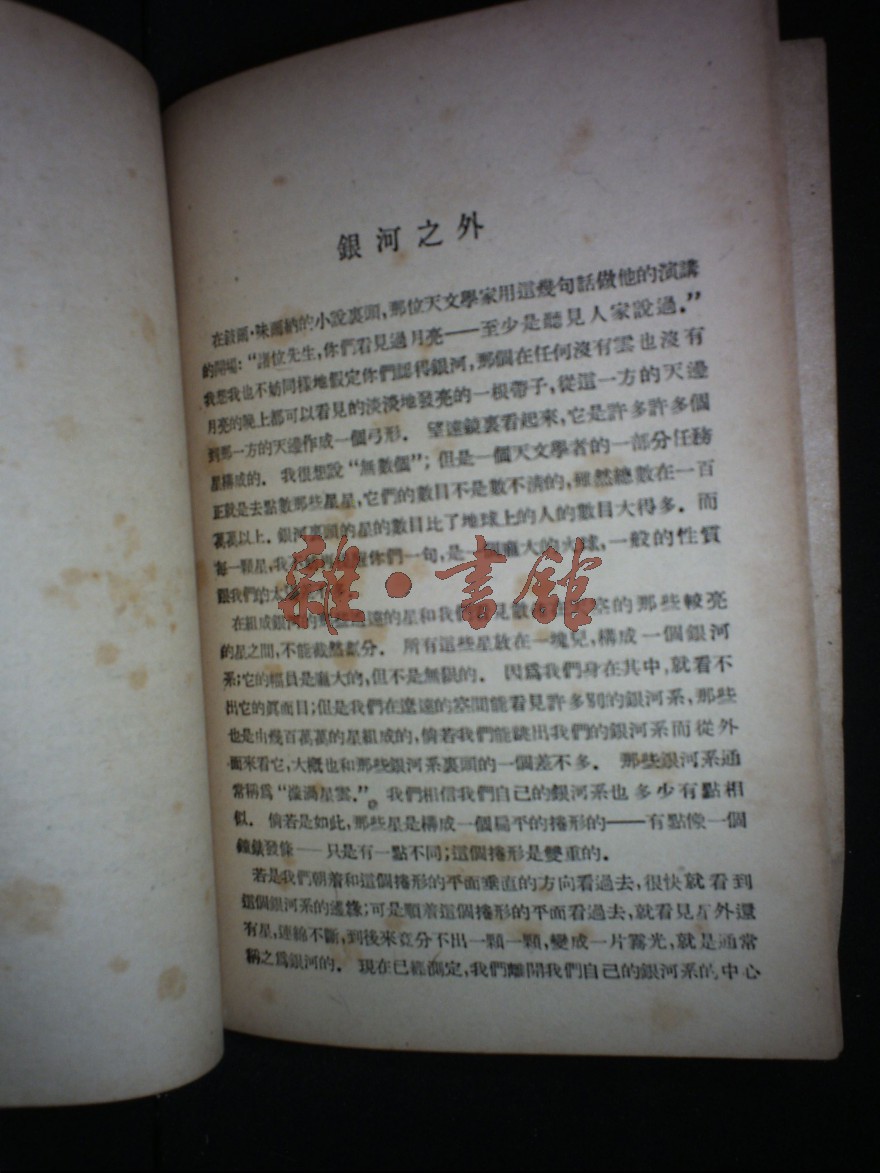 銀河之外
在敍爾·味爾納的小說裏頭,那位天文學家用這幾句話做他的演講
的開場:“諸位先生,你們看見過月亮——至少是聽見人家說過。”
我想我也不妨同樣地假定你們認得銀河,那個在任何沒有雲也沒有
月亮的晚上都可以看見的淡淡地發亮的一根帶子,從這一方的天邊
到那一方的天邊作成一個弓形. 望遠鏡裏看起來,它是許多許多個
星構成的. 我很想說“無數個”;但是一個天文學者的一部分任務
正就是去點數那些星星,它們的數目不是數不清的,雖然總數在一百
萬萬以上.銀河裏頭的星的數目比了地球上的人的數目大得多. 而
每一顆星,我 你們一句,是一個龐大的火球,一般的性質
跟我們的太
在組成銀河的那些遙遠的星和我們看見散 的那些較亮
的星之間,不能截然劃分. 所有這些星放在一塊兒,構成一個銀河
系;它的幅員是龐大的,但不是無限的. 因爲我們身在其中,就看不
出它的眞面目;但是我們在遼遠的空間能看見許多別的銀河系,那些
也是由幾百萬萬的星組成的,倘若我們能跳出我們的銀河系而從外
面來看它,大概也和那些銀河系裏頭的一個差不多. 那些銀河系通
常稱爲“漩渦星雲.”。我們相信我們自己的銀河系也多少有點相
似. 倘若是如此,那些星是構成一個扁平的捲形的——有點像一個
鐘錶發條——只是有一點不同;這個捲形是雙重的.
若是我們朝着和這個捲形的平面垂直的方向看過去,很快就看到
這個銀河系的邊緣;可是順着這個捲形的平面看過去,就看見星外還
有星,連綿不斷,到後來竟分不出一顆一顆,變成一片霧光,就是通常
稱之爲銀河的. 現在已經測定,我們離開我們自己的銀河系的中心
雜·書館